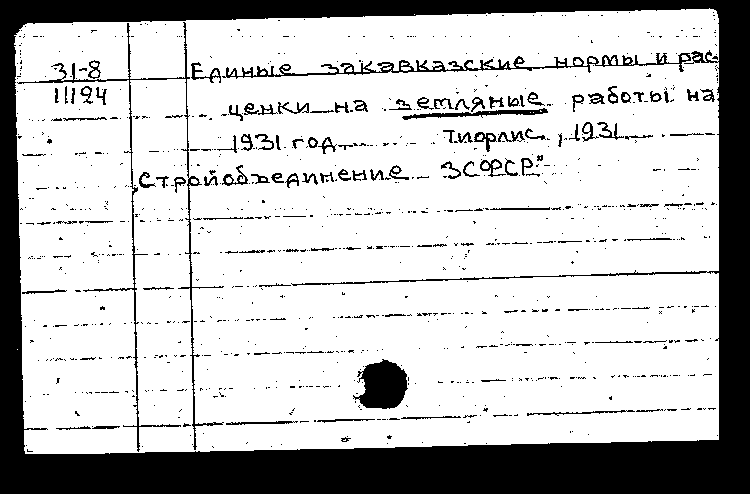 31-8 Единые закавказские нормы и рас-
11124 ценки на земляные работы на
1931 год. Тифлис, 1931
„Стройобъединение ЗСФСР"